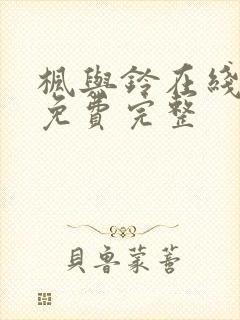 楓與鈴在綫
免費完整
貝魯蒙薈